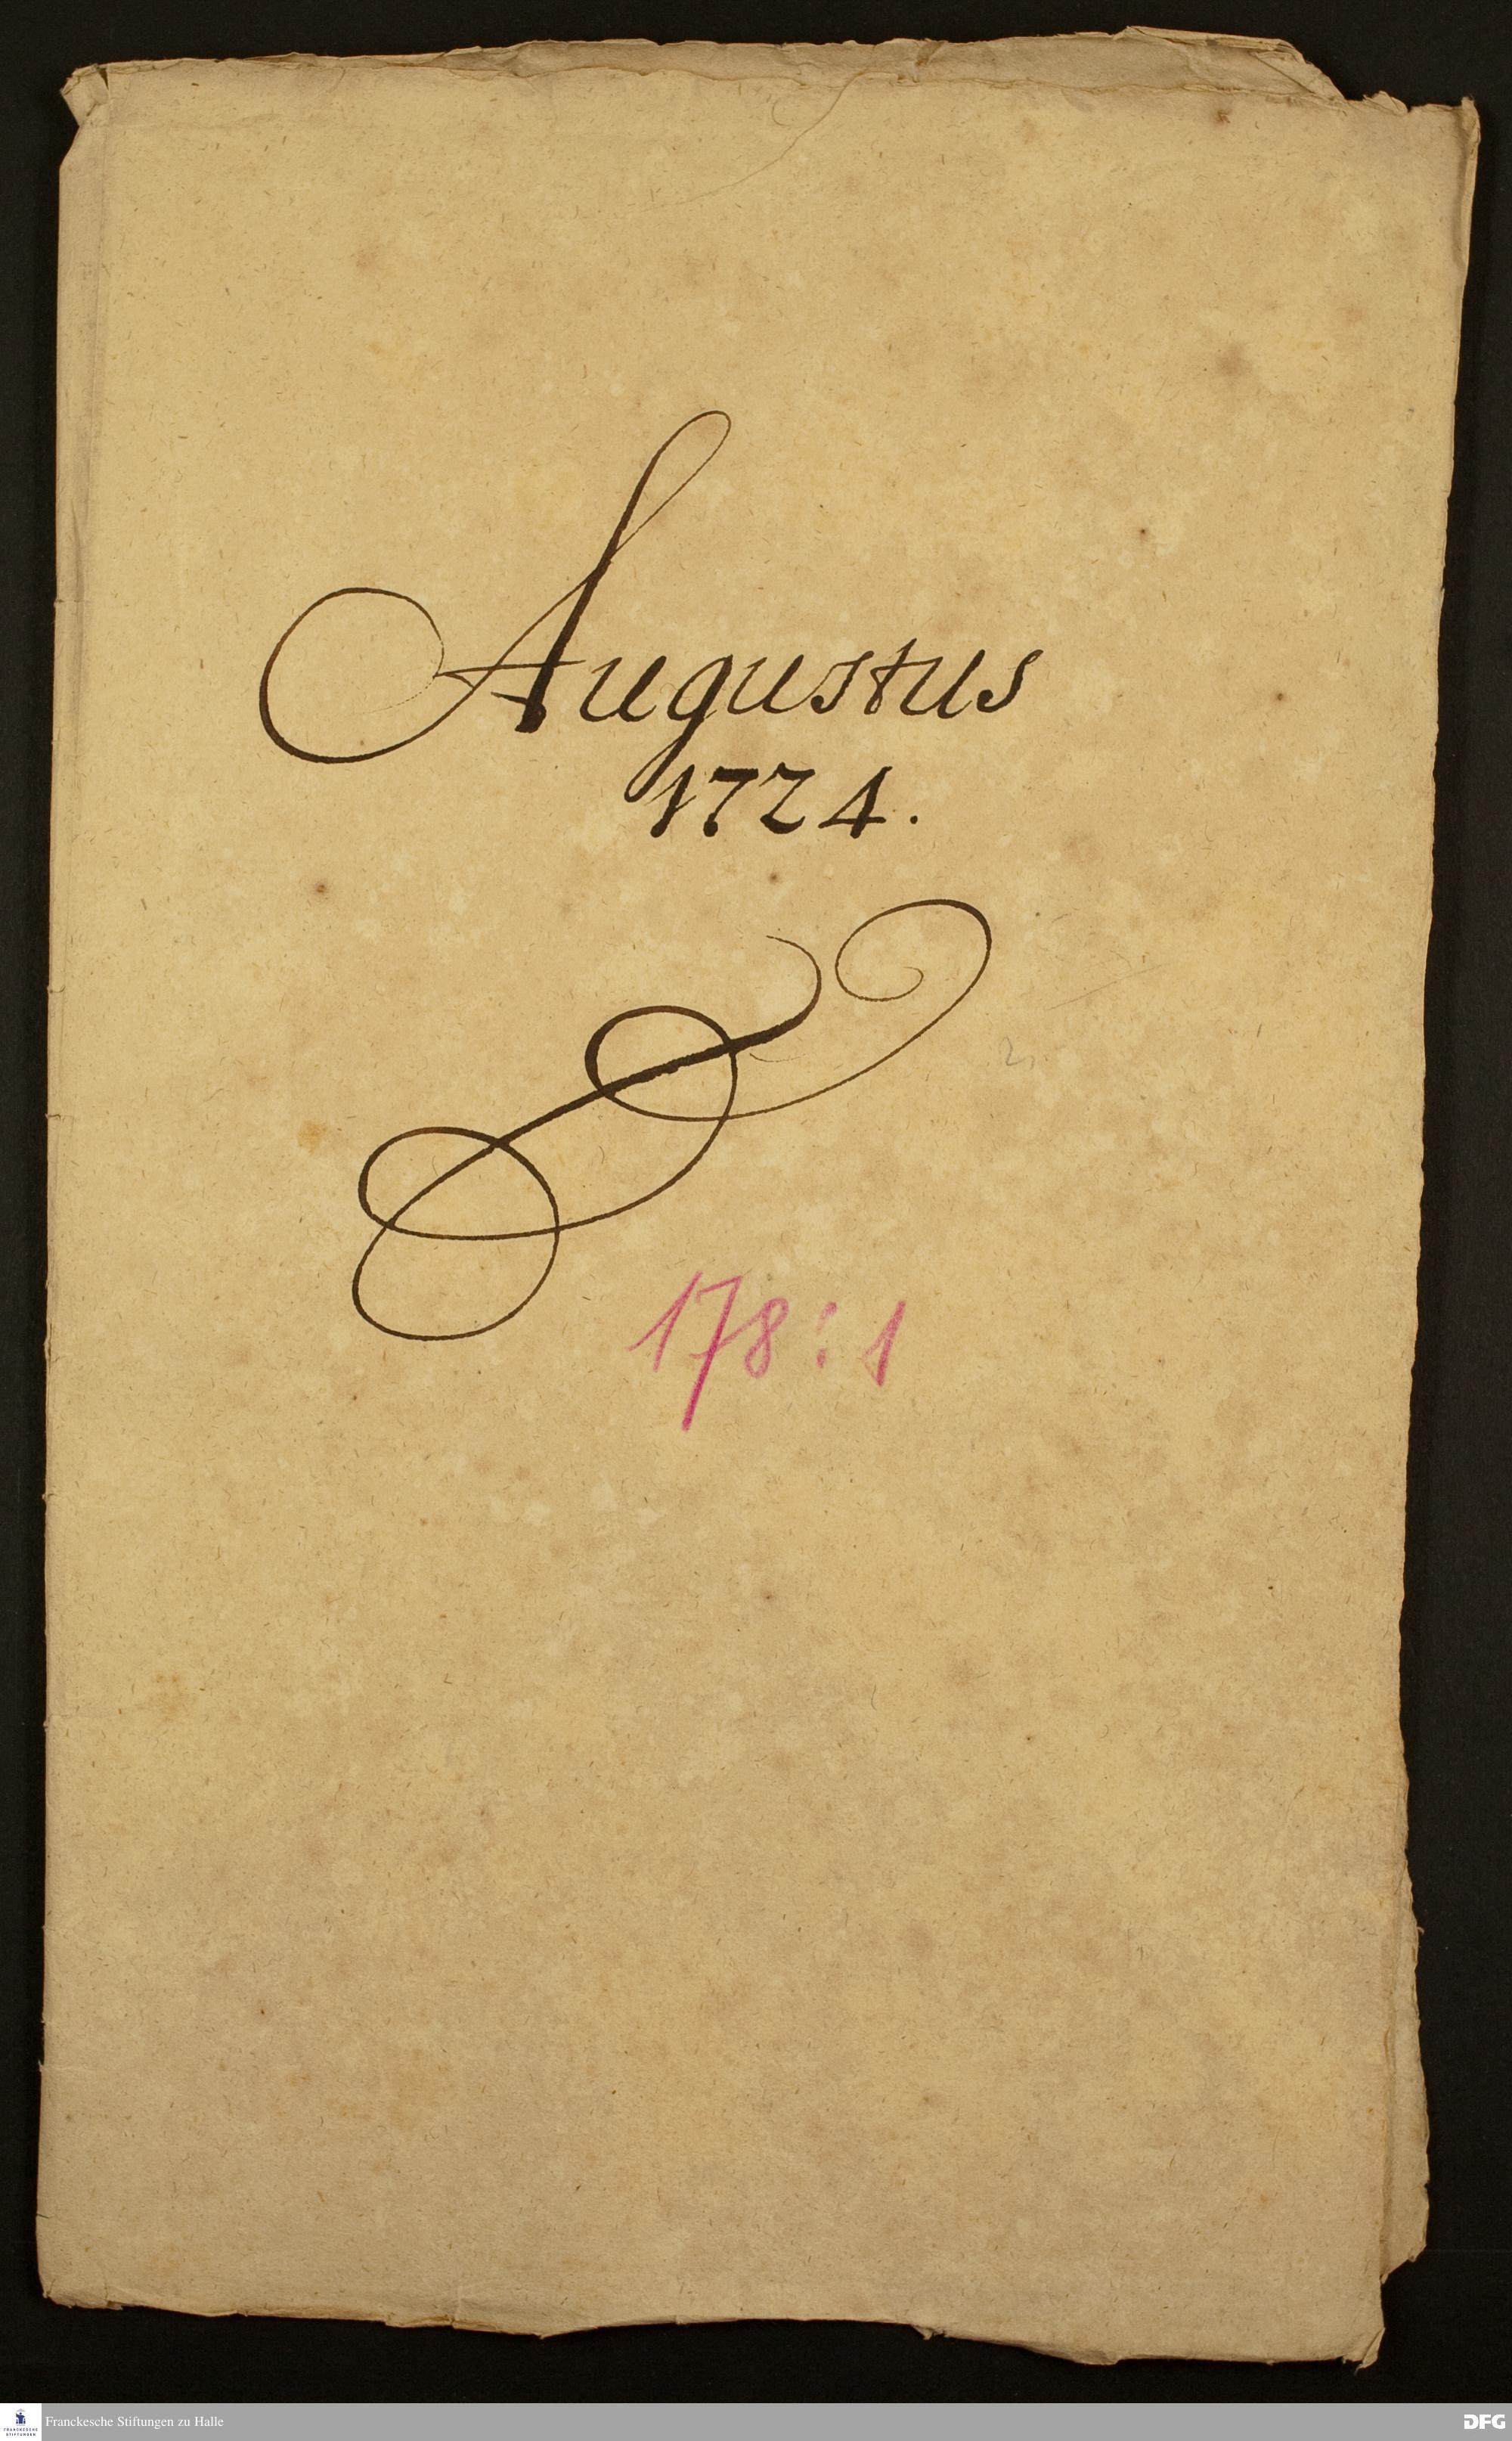 Augustus
1724.
178:1
Franckesche Stiftungen zu Halle
FRANCKESCHE
STIFTUNGEN
DFG